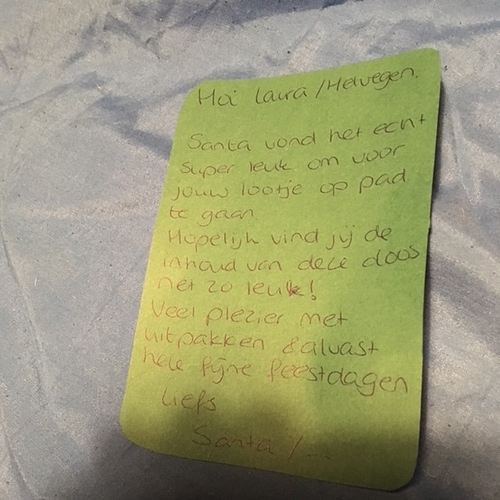 Hoi Laura / Helvegen.
Santa vond het echt
super leuk om voor
jouw lootje op pad
te gaan
Hopelijk vind jij de
inhoud van deze doos
net zo leuk!
Veel plezier met
uitpakken & alvast
hele fijne feestdagen
Liefs
Santa /